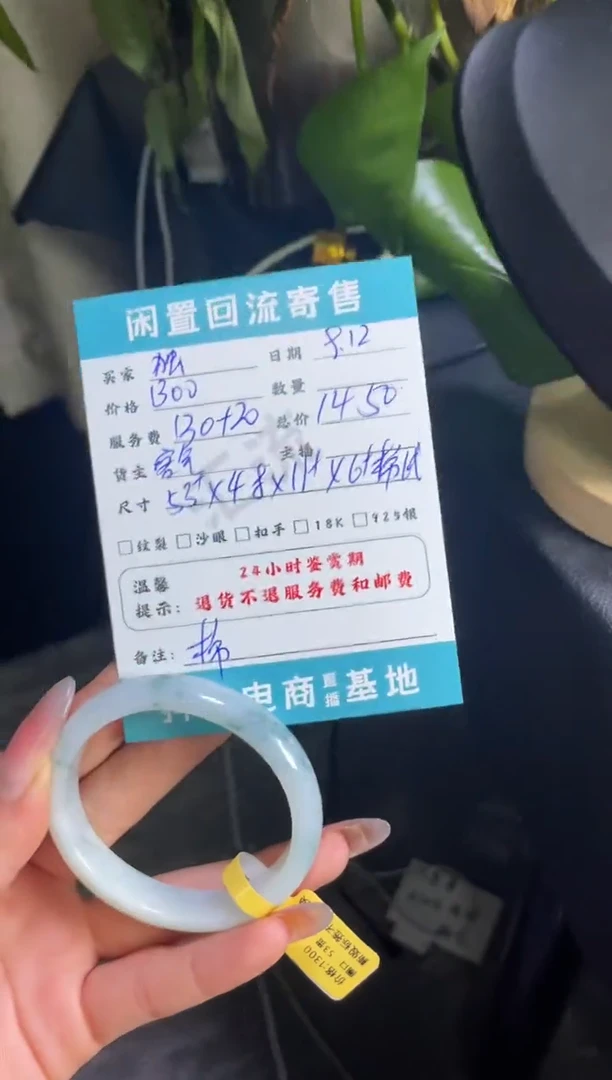 闲置回流寄售
买家 日期 9.12
价格 1300 数量
服务费 130+20 总价 1450
货主 主播
尺寸 53⁺×48×11⁺×6⁺棉
纹裂 沙眼 扣手 18K 925银
温馨提示: 24小时鉴赏期
退货不退服务费和邮费
备注: 棉
电商直播基地
价格:1300
圈口 53